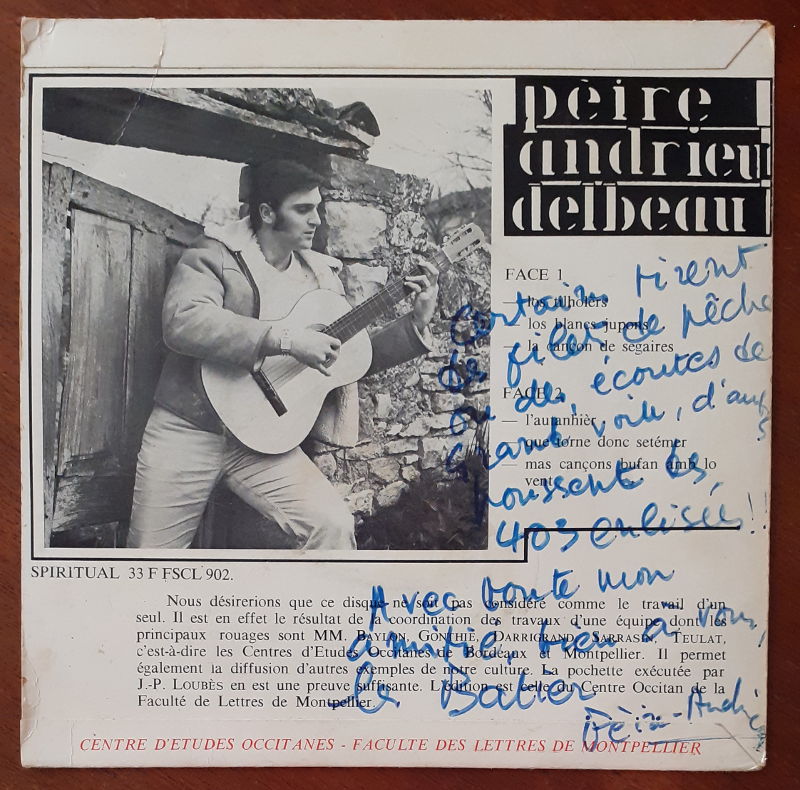 pèire
andrieu
delbeau
FACE 1
— los tilholèrs
— los blancs jupons
— la cançon de segaires
FACE 2
— l'autanhièr
— que torne donc setémer
— mas cançons bufan amb lo
vent
Certains tirent
des filets de pêche
ou des écoutes de
Grand voile, d'autres
poussent des
403 enlisées!!
Avec toute mon
amitié, bien à vous,
Le Batièr
Pèir-Andrieu
SPIRITUAL 33 F FSCL 902.
Nous désirerions que ce disque ne soit pas considéré comme le travail d'un
seul. Il est en effet le résultat de la coordination des travaux d'une équipe dont les
principaux rouages sont MM. BAYLON, GONTHIÉ, DARRIGRAND, SARRASIN, TEULAT,
c'est-à-dire les Centres d'Etudes Occitanes de Bordeaux et Montpellier. Il permet
également la diffusion d'autres exemples de notre culture. La pochette exécutée par
J.-P. LOUBÈS en est une preuve suffisante. L'édition est celle du Centre Occitan de la
Faculté de Lettres de Montpellier.
CENTRE D'ETUDES OCCITANES - FACULTE DES LETTRES DE MONTPELLIER